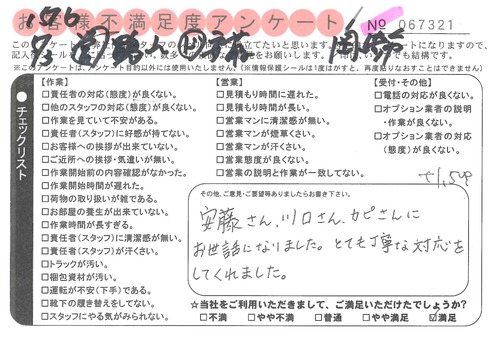 お客様不満足度アンケート
No 067321
このアンケートは
記入
※このアンケートは、アンケート目的以外には使用いたしません。(※情報保護シールは1度はがすと、再度貼りなおすことはできません)
チェックリスト
【作業】
□責任者の対応(態度)が良くない。
□他のスタッフの対応(態度)が良くない。
□作業を見ていて不安がある。
□責任者(スタッフ)に好感が持てない。
□お客様への挨拶が出来ていない。
□ご近所への挨拶・気遣いが無い。
□作業開始前の内容確認がなかった。
□作業開始時間が遅れた。
□荷物の取り扱いが雑である。
□お部屋の養生が出来ていない。
□作業時間が長すぎる。
□責任者(スタッフ)に清潔感が無い。
□責任者(スタッフ)が汗くさい。
□トラックが汚い。
□梱包資材が汚い。
□運転が不安(下手)である。
□靴下の履き替えをしてない。
□スタッフにやる気がみられない。
【営業】
□見積もり時間に遅れた。
□見積もり時間が長い。
□営業マンに清潔感が無い。
□営業マンが煙草くさい。
□営業マンが汗くさい。
□営業態度が良くない。
□営業の説明と作業が一致してない。
【受付・その他】
□電話の対応が良くない。
□オプション業者の説明
・作業が良くない。
□オプション業者の対応
(態度)が良くない。
その他、ご意見・ご要望等ありましたらお書き下さい。
安藤さん、川口さん、カピさんに
お世話になりました。とても丁寧な対応を
してくれました。
☆当社をご利用いただきまして、ご満足いただけたでしょうか?
□不満 □やや不満 □普通 □やや満足 ☑満足